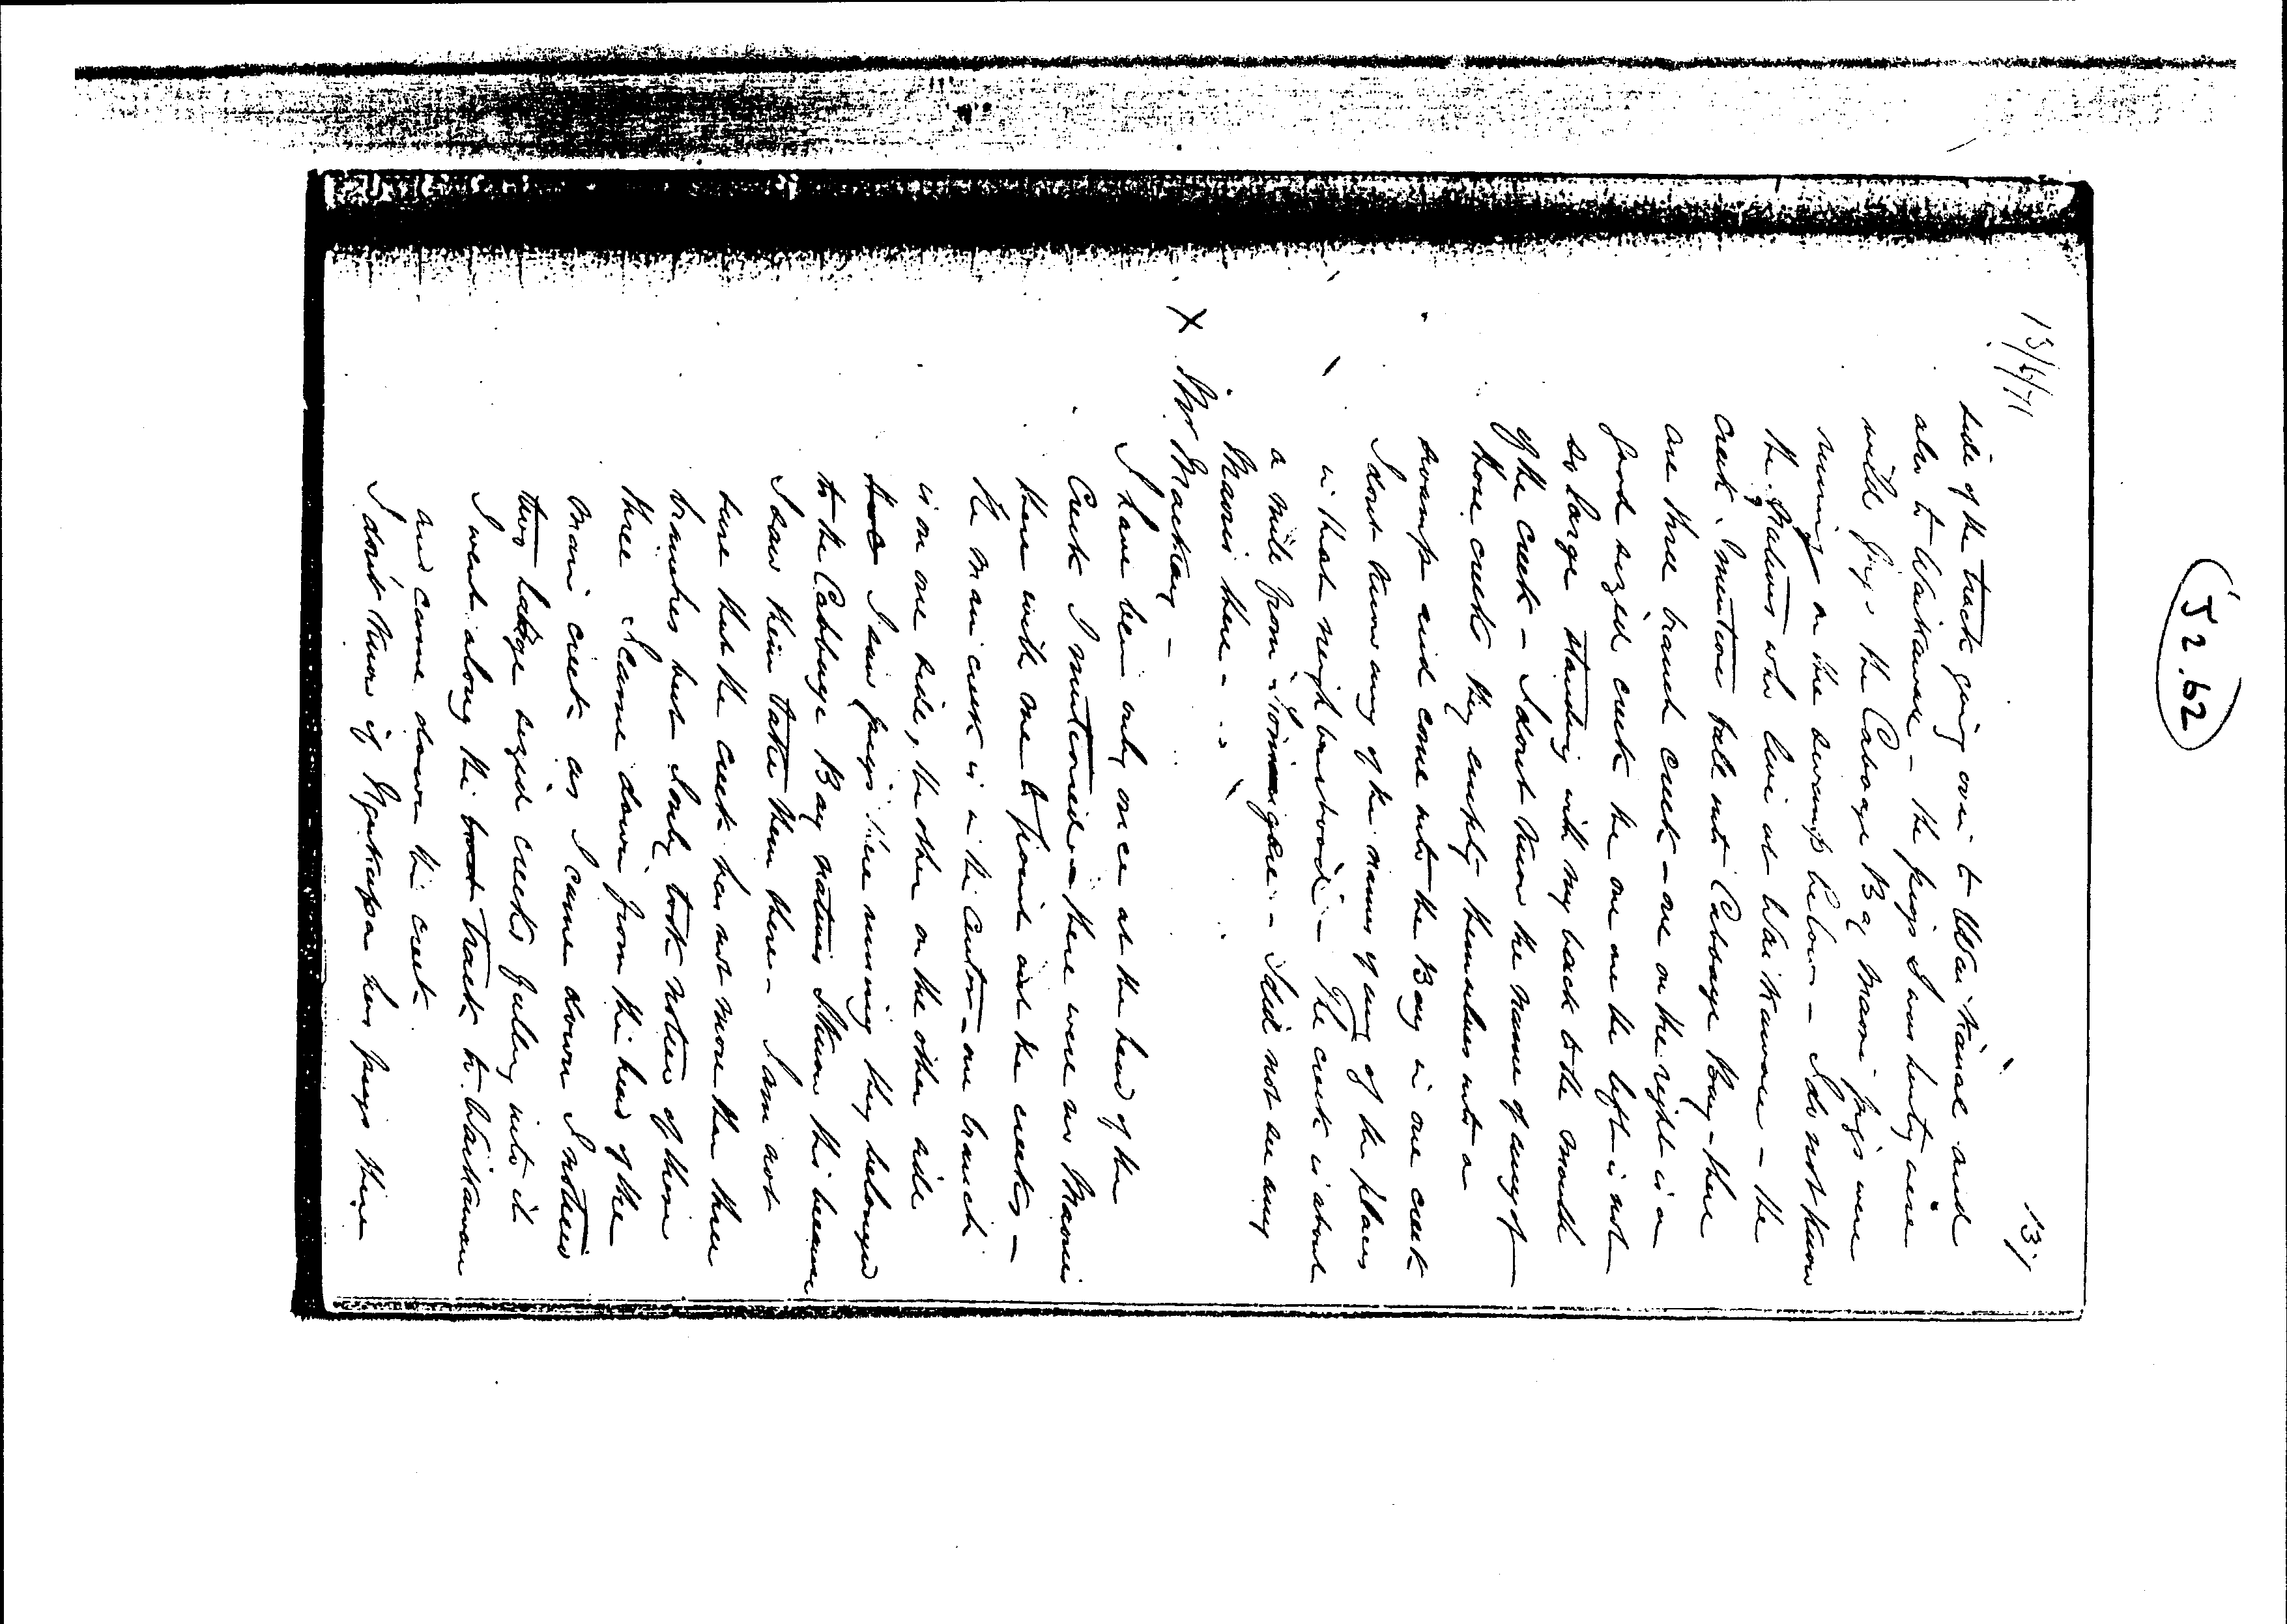 52.62
13/6/71
131
side of the track going over to Waikawae and
also to Waikawae - the pigs I was hunting were
wild pigs the Cabbage Bay Maori pigs were
running on the swamp below - I do not know
the Natives who live at Waikawae - the
creek I mention falls into Cabbage Bay - there
are three branch creek - one on the right is a
good sized creek the one on the left is not
so large standing with my back to the mouth
of the creek - I dont know the name of any of
those creeks they empty themselves into a
swamp and come into the Bay in one creek
I dont know any of the names of any of the places
in that neighbourhood - The creek is about
a mile from - I did not see any
Maoris there -
X Mr Mackay -
I have been only once at the head of the
Creek I mentioned - there were no Maoris
there with me to point out the creeks -
the main creek is in the centre - one branch
is on one side, the other on the other side
I saw pigs there running they belonged
to the Cabbage Bay natives I know this because
I saw them take them there - I am not
sure that the creek has not more than three
branches but I only took notice of them
three I came down from the head of the
main creek as I came down I noticed
two large sized creeks falling into it
I went along the track to Waikawau
and came down the creek.
I don't know if has pigs there